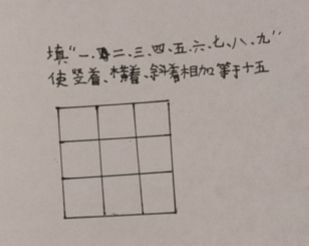 填“一、二、三、四、五、六、七、八、九”
使竖着、横着、斜着相加等于十五